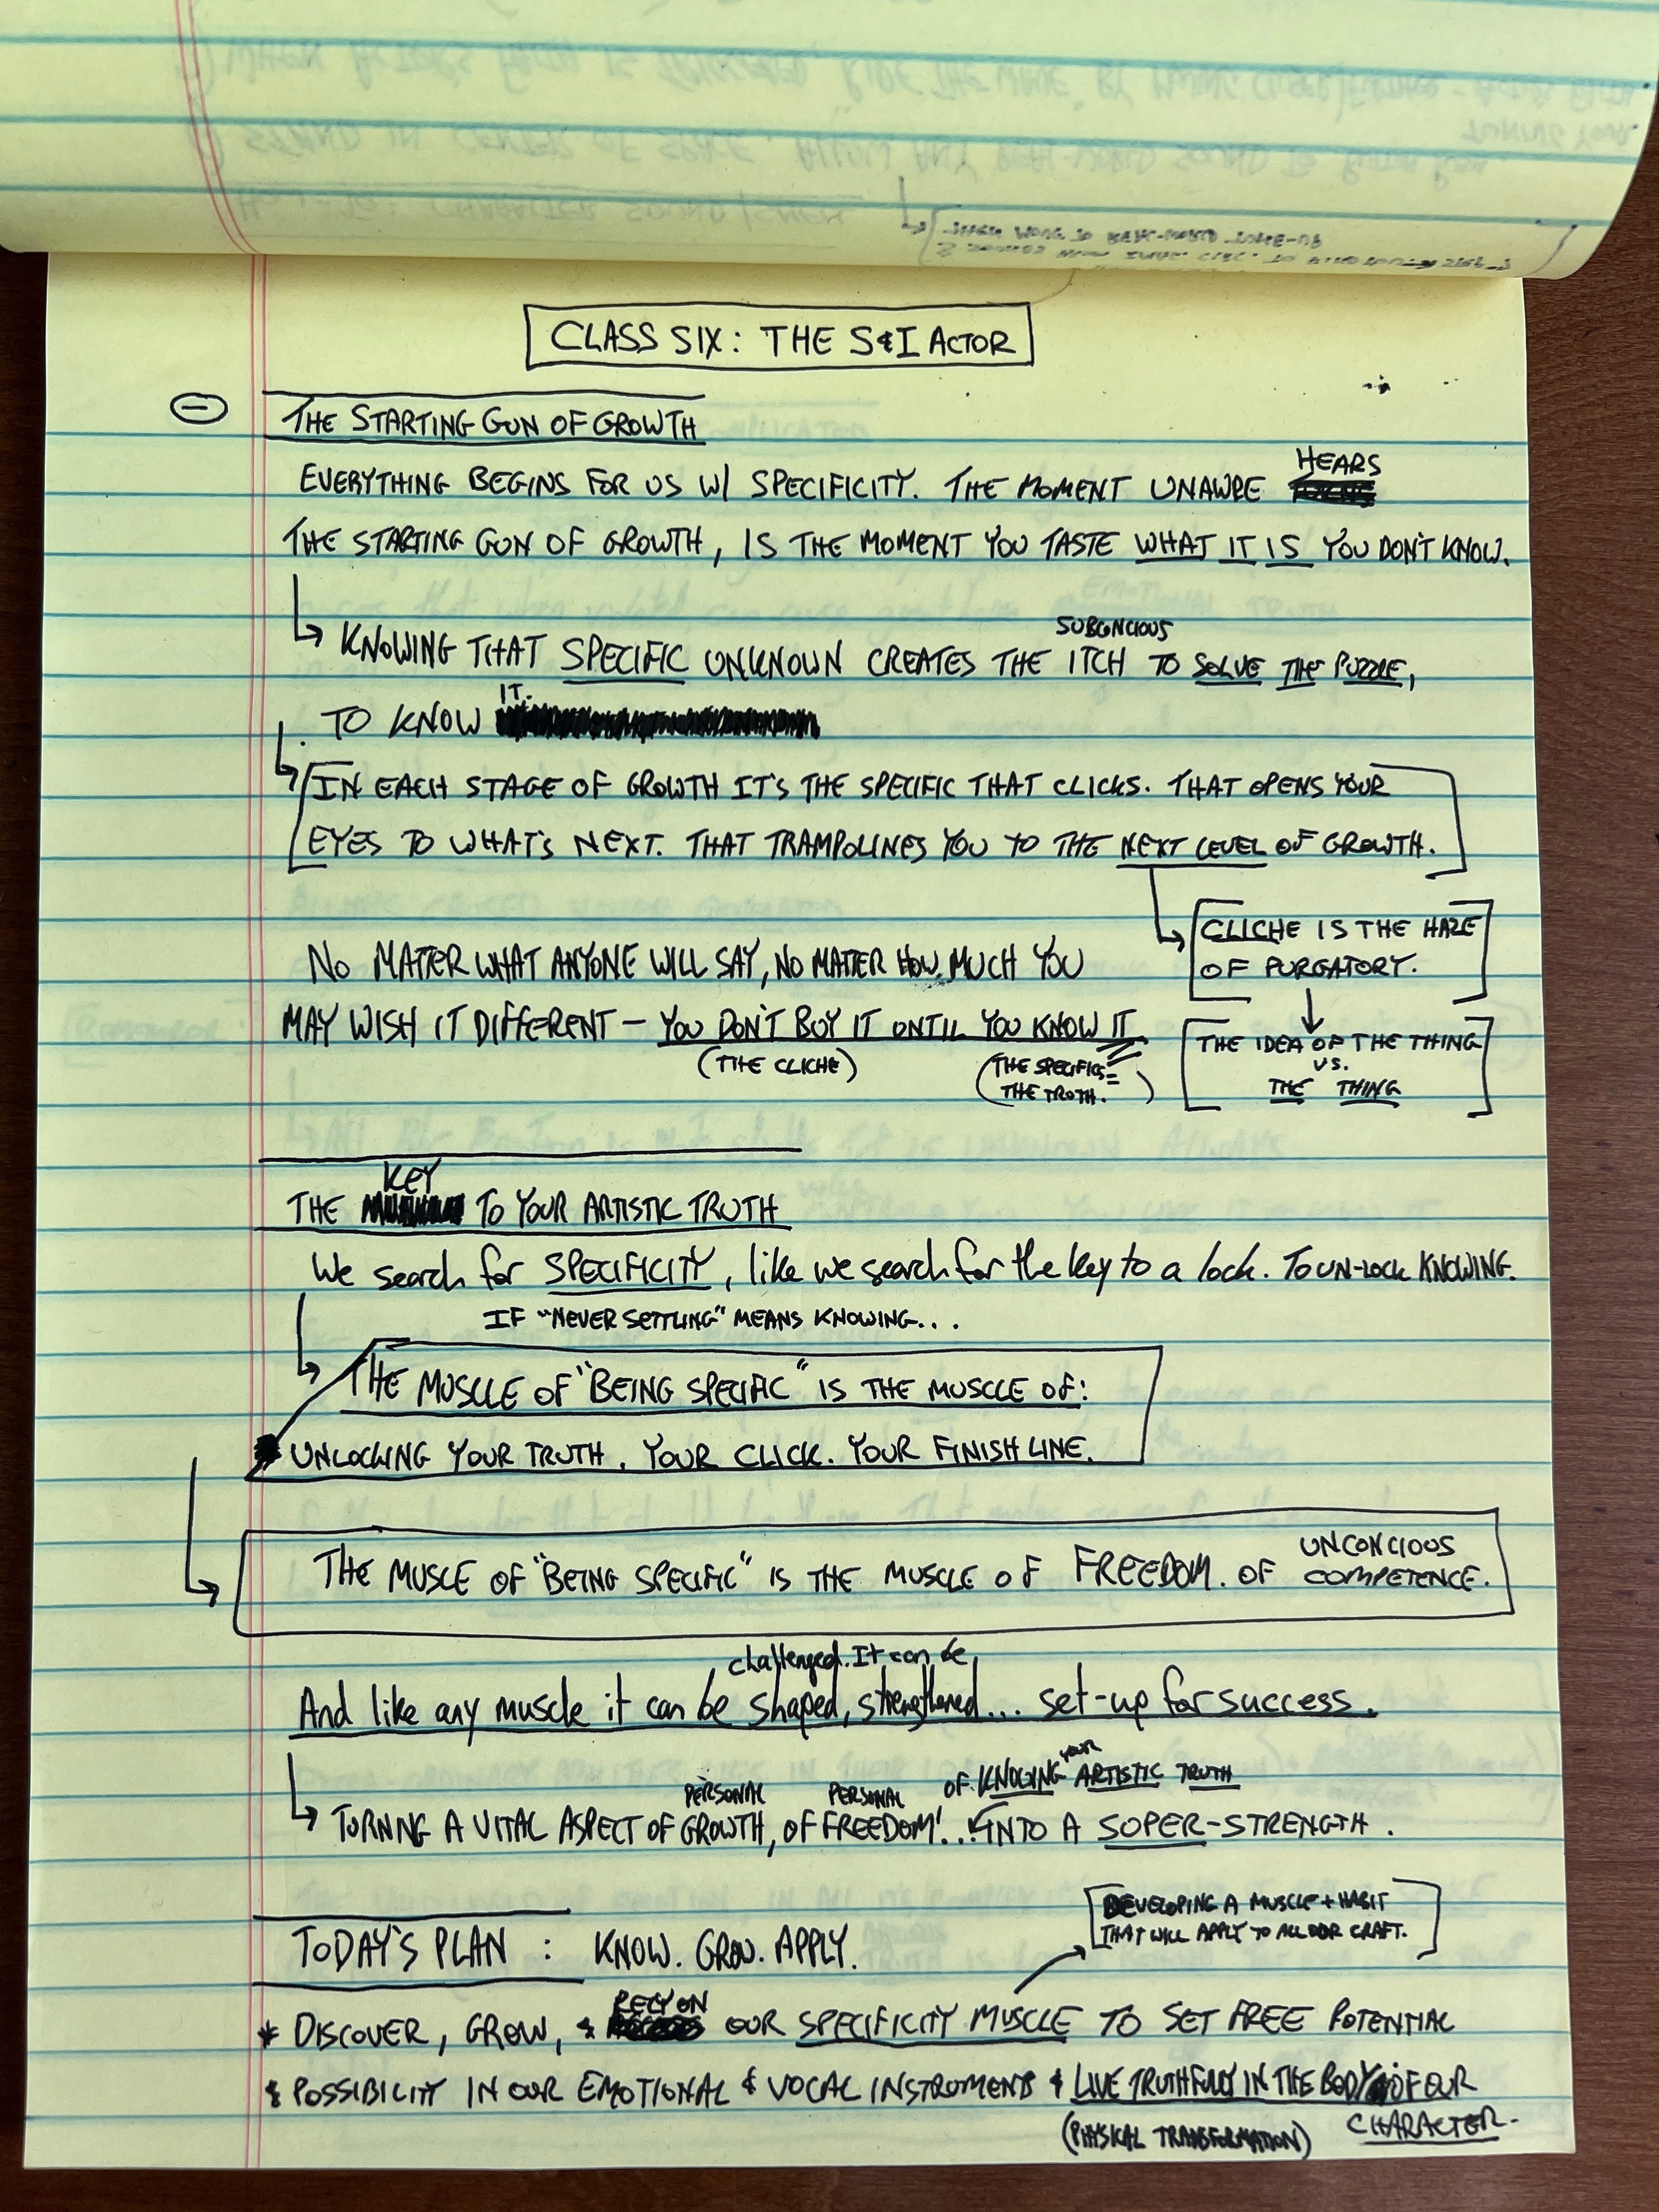 CLASS SIX: THE S&I ACTOR
THE STARTING GUN OF GROWTH
EVERYTHING BEGINS FOR US W/ SPECIFICITY. THE MOMENT UNAWRE HEARS
THE STARTING GUN OF GROWTH, IS THE MOMENT YOU TASTE WHAT IT IS YOU DON'T KNOW.
KNOWING THAT SPECIFIC UNKNOWN CREATES THE SUBCONCIOUS ITCH TO SOLVE THE PUZZLE,
TO KNOW IT.
IN EACH STAGE OF GROWTH IT'S THE SPECIFIC THAT CLICKS. THAT OPENS YOUR
EYES TO WHAT'S NEXT. THAT TRAMPOLINES YOU TO THE NEXT LEVEL OF GROWTH.
CLICHE IS THE HAZE
OF PURGATORY.
THE IDEA OF THE THING
VS.
THE THING
NO MATTER WHAT ANYONE WILL SAY, NO MATTER HOW MUCH YOU
MAY WISH IT DIFFERENT – YOU DON'T BUY IT UNTIL YOU KNOW IT
(THE CLICHE) (THE SPECIFIC =
THE TRUTH.)
THE KEY TO YOUR ARTISTIC TRUTH
We search for SPECIFICITY, like we search for the key to a lock. TO UN-LOCK KNOWING.
IF "NEVER SETTLING" MEANS KNOWING...
THE MUSCLE OF "BEING SPECIFIC" IS THE MUSCLE OF:
UNLOCKING YOUR TRUTH. YOUR CLICK. YOUR FINISH LINE.
THE MUSCLE OF "BEING SPECIFIC" IS THE MUSCLE OF FREEDOM. OF UNCONCIOUS COMPETENCE.
And like any muscle it can be challenged. It can be shaped, strengthened... set-up for success.
TURNING A VITAL ASPECT OF PERSONAL GROWTH, OF PERSONAL FREEDOM! ... OF KNOWING YOUR ARTISTIC TRUTH INTO A SUPER-STRENGTH.
TODAY'S PLAN : KNOW. GROW. APPLY.
DEVELOPING A MUSCLE + HABIT
THAT WILL APPLY TO ALL OUR CRAFT.
* DISCOVER, GROW, & RELY ON OUR SPECIFICITY MUSCLE TO SET FREE POTENTIAL
& POSSIBILITY IN OUR EMOTIONAL & VOCAL INSTRUMENTS & LIVE TRUTHFULLY IN THE BODY OF OUR
(PHYSICAL TRANSFORMATION) CHARACTER.